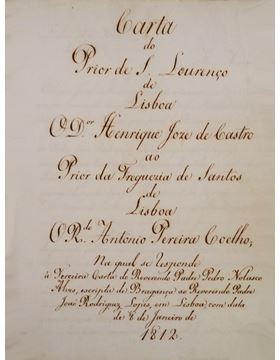 Carta
do
Prior de S. Lourenço
de
Lisboa
O Dor Henrique Joze de Castro
ao
Prior da Freguezia de Santos
de
Lisboa
O Rdo Antonio Pereira Coelho,
Na qual se responde
á Terceira Carta do Reverendo Padre Pedro Nolasco
Alves, escripta de Bragança ao Reverendo Padre
João Rodrigues Lopes, em Lisboa, com data
de 8 de Janeiro de
1812.